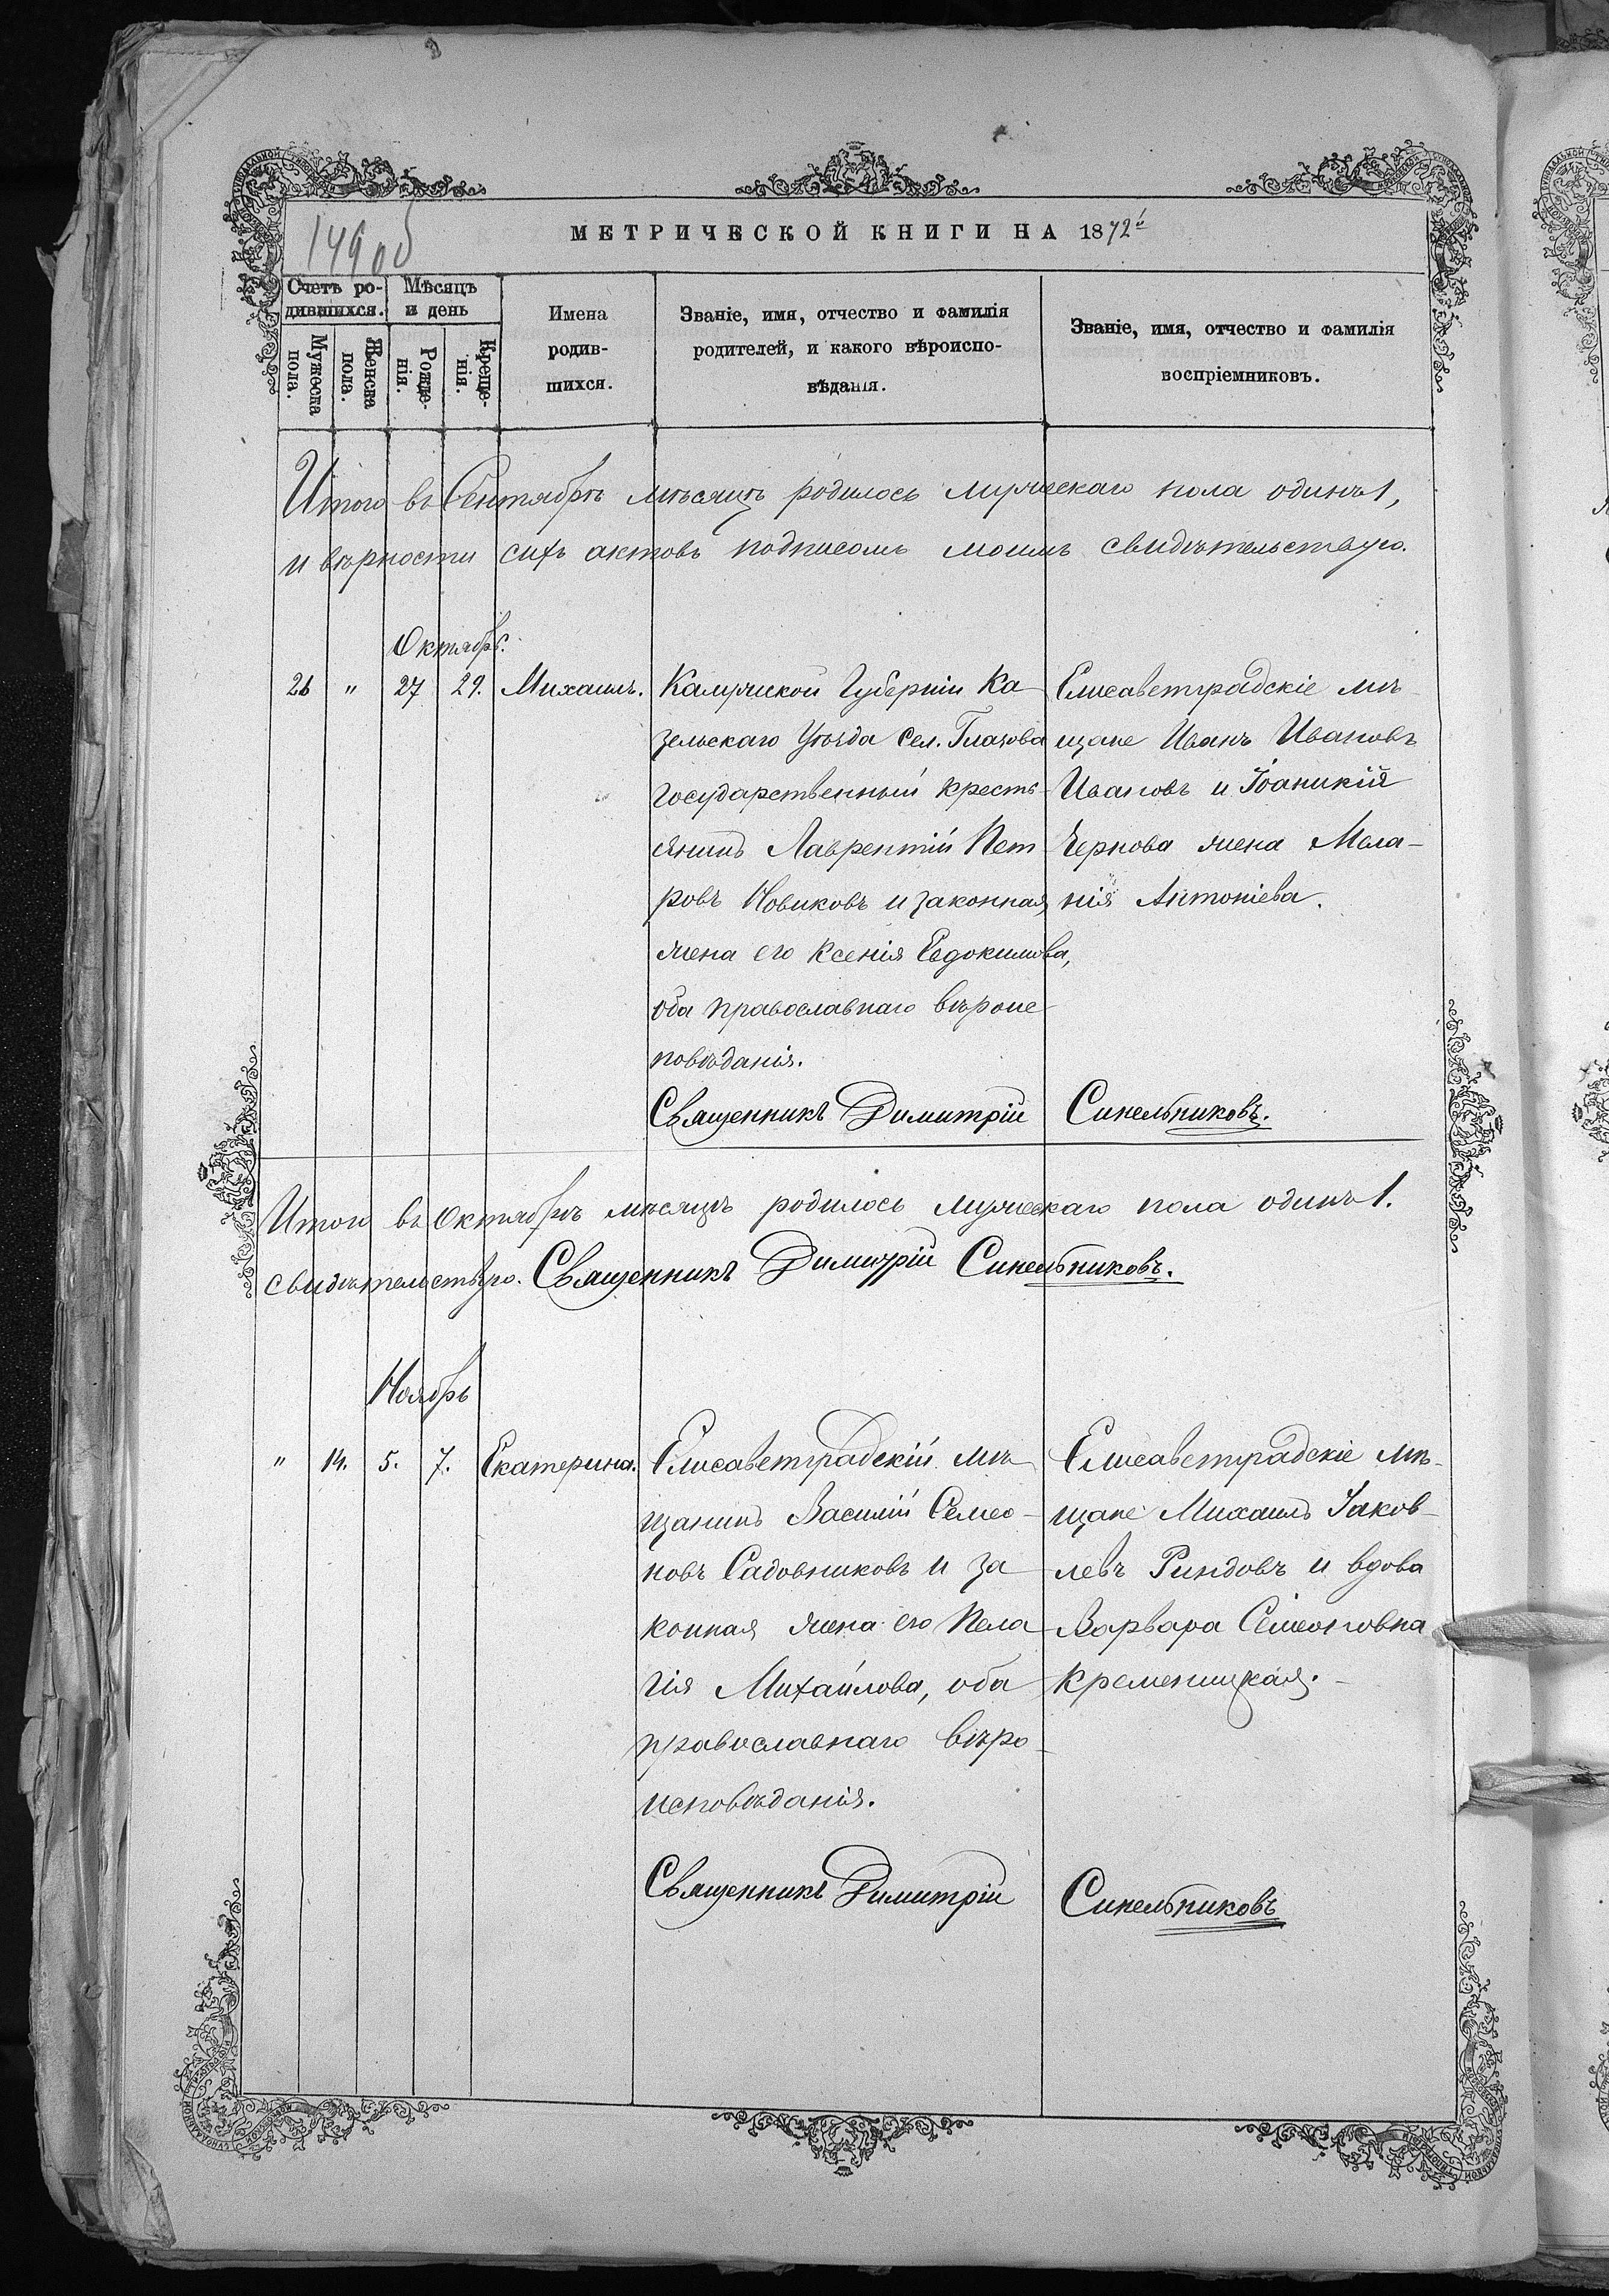 149 об
МЕТРИЧЕСКОЙ КНИГИ НА 1872й
Счетъ ро-
дившихся.
Мѣсяцъ
и день
Мужеска
пола.
Женска
пола.
Рожде-
нія.
Креще-
нія.
Имена
родив-
шихся.
Званіе, имя, отчество и фамилія
родителей, и какого вѣроиспо-
вѣданія.
Званіе, имя, отчество и фамилія
воспріемниковъ.
Итого въ Сентябрѣ мѣсяцѣ родилось мужескаго пола одинъ 1,
и вѣрности сихъ актовъ подписомъ моимъ свидѣтельствую.
Октябрь.
21 " 27 29. Михаилъ.
Калужской Губерніи Ка-
зельскаго Уѣзда Сел. Глазова
государственный кресть-
янинъ Лаврентій Пет-
ровъ Новиковъ и законная
жена его Ксенія Евдокимова,
оба православнаго вѣроис-
повѣданія.
Елисаветградскіе мѣ-
щане Иванъ Ивановъ
Ивановъ и Іоаникій
Чернова жена Мела-
нія Антоніева.
Священникъ Димитрій Синельниковъ.
Итого въ Октябрѣ мѣсяцѣ родилось мужескаго пола одинъ 1.
свидѣтельствую. Священникъ Димитрій Синельниковъ.
Ноябрь
" 14. 5. 7. Екатерина.
Елисаветградскій мѣ-
щанинъ Василій Семео-
новъ Садовниковъ и за-
конная жена его Пела-
гія Михайлова, оба
православнаго вѣро-
исповѣданія.
Елисаветградскіе мѣ-
щане Михаилъ Іаков-
левъ Риндовъ и вдова
Варвара Сімеоновна
Кременицкая.
Священникъ Димитрій Синельниковъ